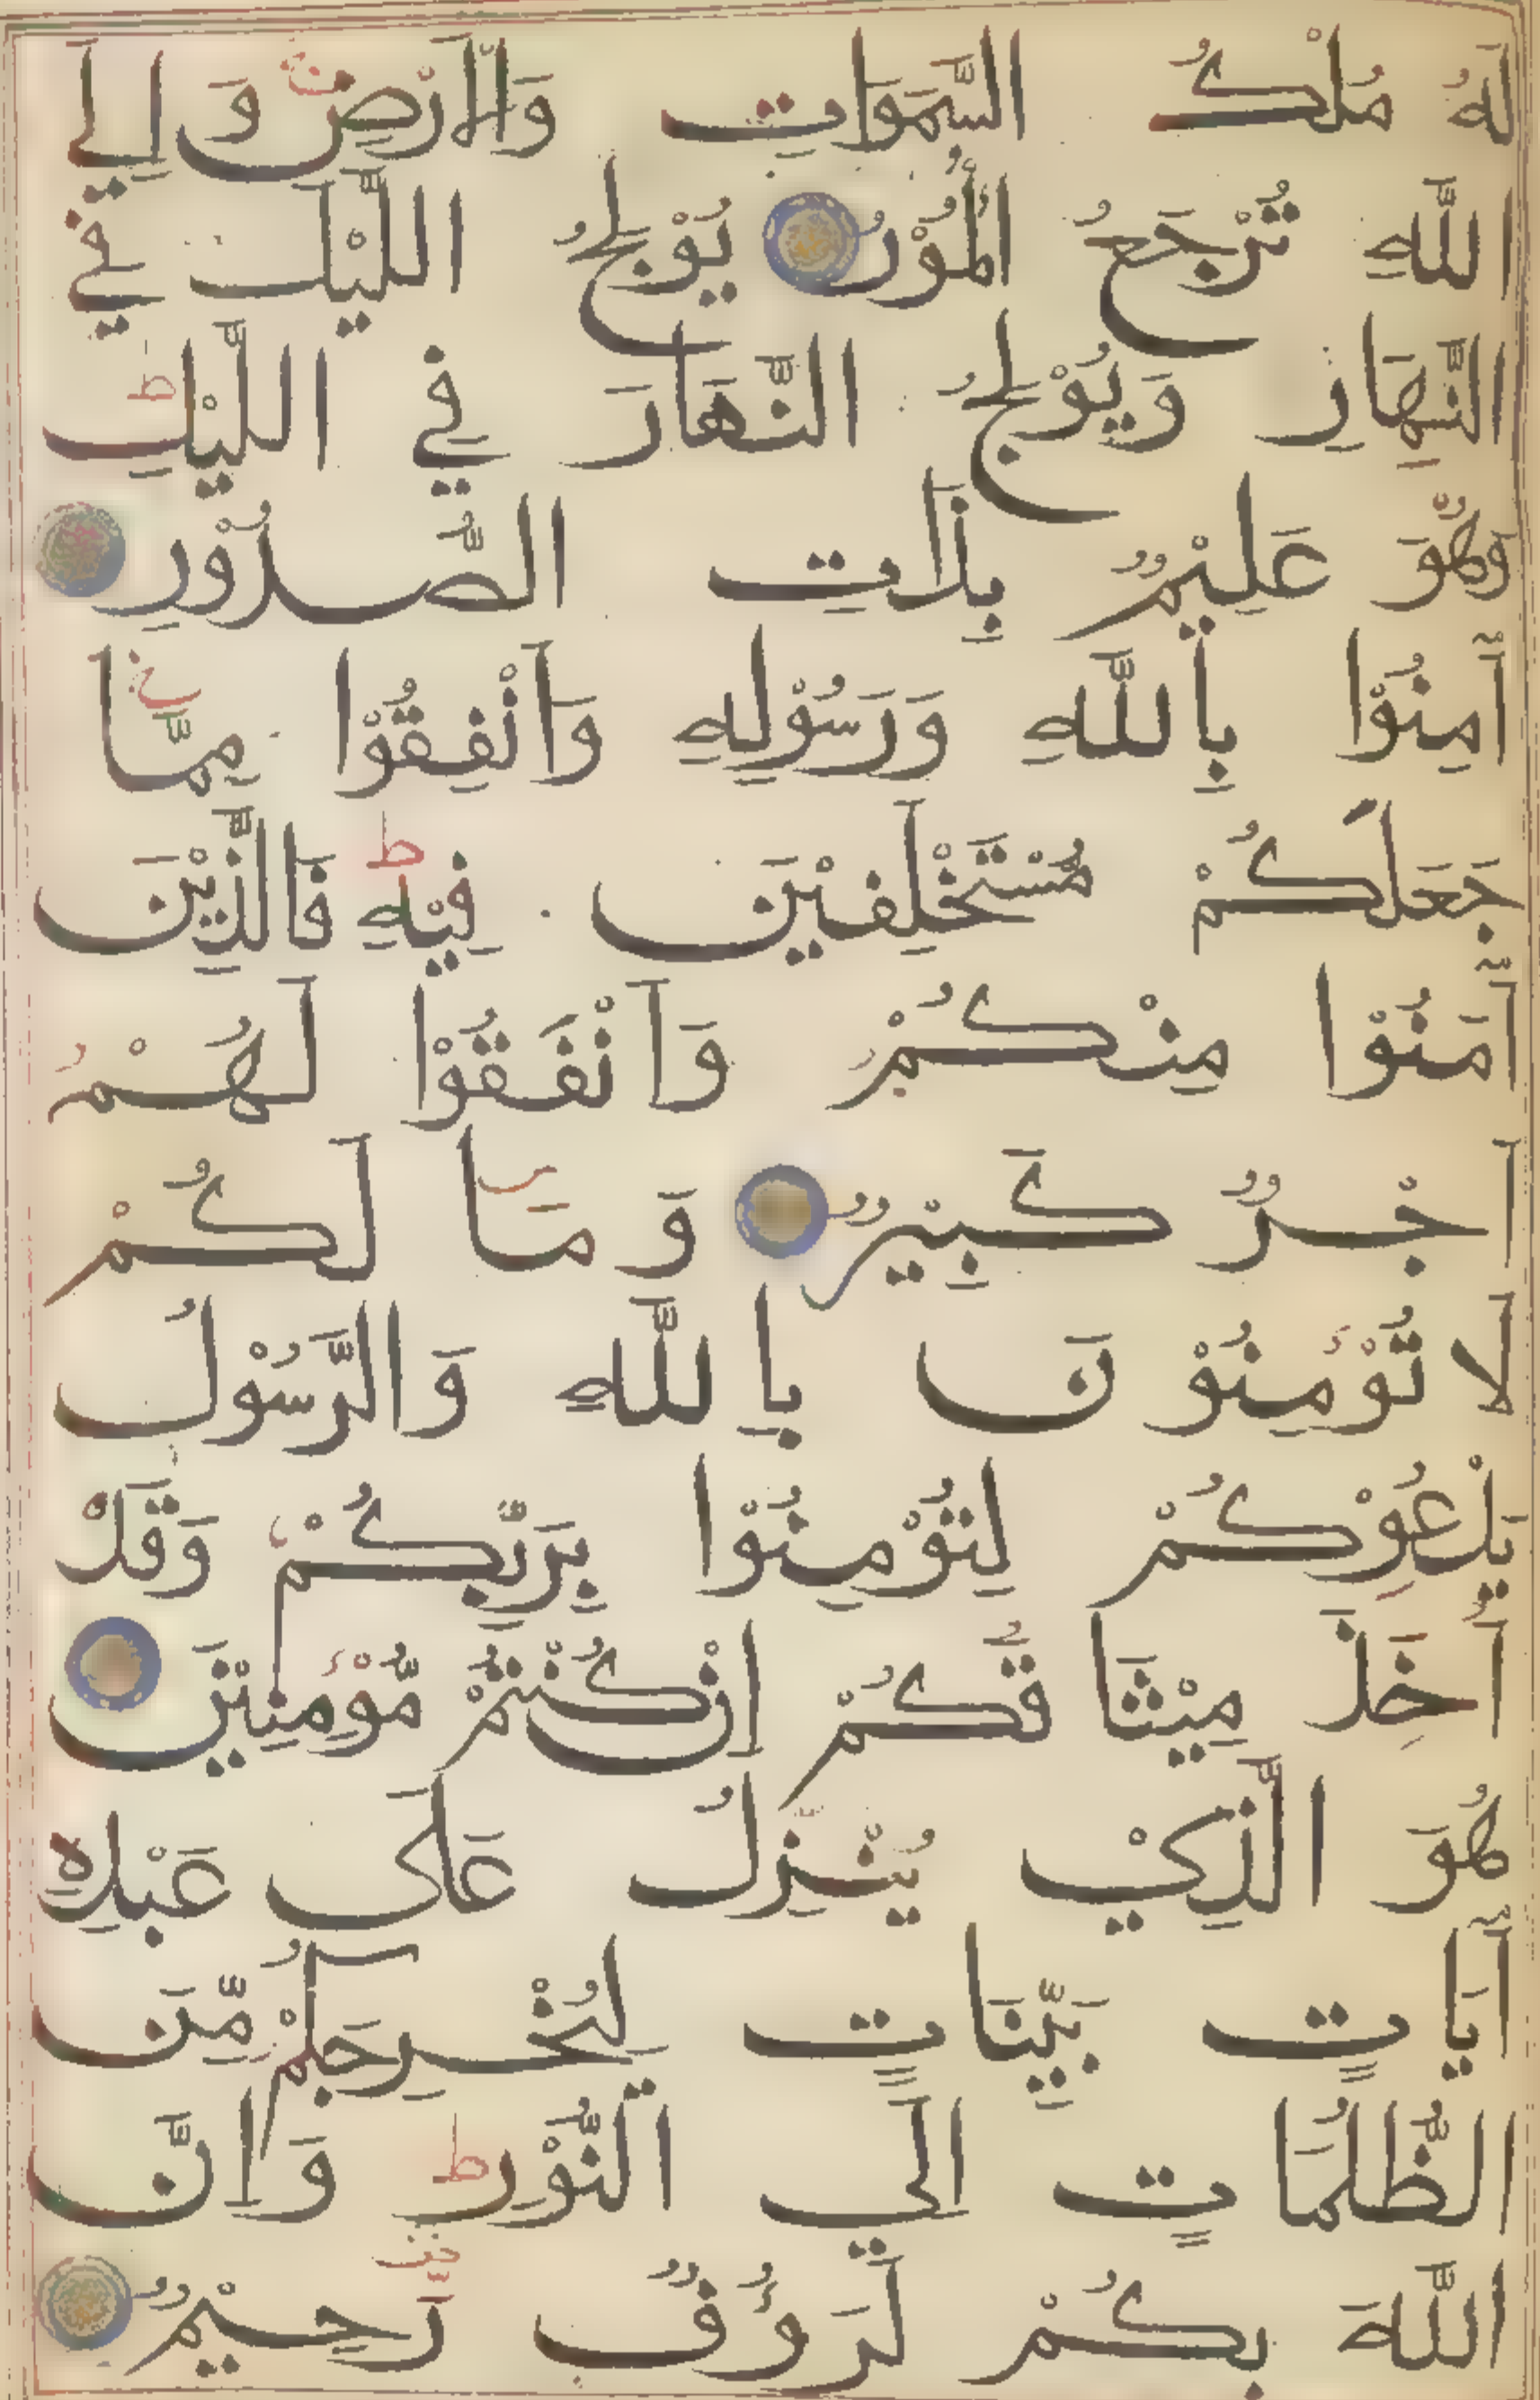 لَهُ مُلْكُ السَّمَوَاتِ وَالْاَرْضِ وَ اِلَي
اللَّهِ تُرْجَعُ الْأُمُوْرُ يُوْلِجُ اللَّيْلَ فِي
النَّهَارِ وَيُوْلِجُ النَّهَارَ فِي اللَّيْلِ ط
وَهُوَ عَلِيْمٌ بِذَاتِ الصُّدُوْرِ
آمِنُوْا بِاللَّهِ وَرَسُوْلِهِ وَاَنْفِقُوْا مِمَّا
جَعَلَكُمْ مُسْتَخْلَفِيْنَ فِيْهِ ط فَالَّذِيْنَ
آمَنُوْا مِنْكُمْ وَاَنْفَقُوْا لَهُمْ
اَجْرٌ كَبِيْرٌ وَ مَا لَكُمْ
لَا تُؤْمِنُوْنَ بِاللَّهِ وَالرَّسُوْلُ
يَدْعُوْكُمْ لِتُؤْمِنُوْا بِرَبِّكُمْ وَقَدْ
أَخَذَ مِيْثَاقَكُمْ اِنْ كُنْتُمْ مُّؤْمِنِيْنَ
هُوَ الَّذِيْ يُنَزِّلُ عَلَى عَبْدِهِ
آيَاتٍ بَيِّنَاتٍ لِيُخْرِجَكُمْ مِّنَ
الظُّلُمَاتِ اِلَي النُّوْرِ ط وَاِنَّ
اللَّهَ بِكُمْ لَرَؤُفٌ رَّحِيْمٌ